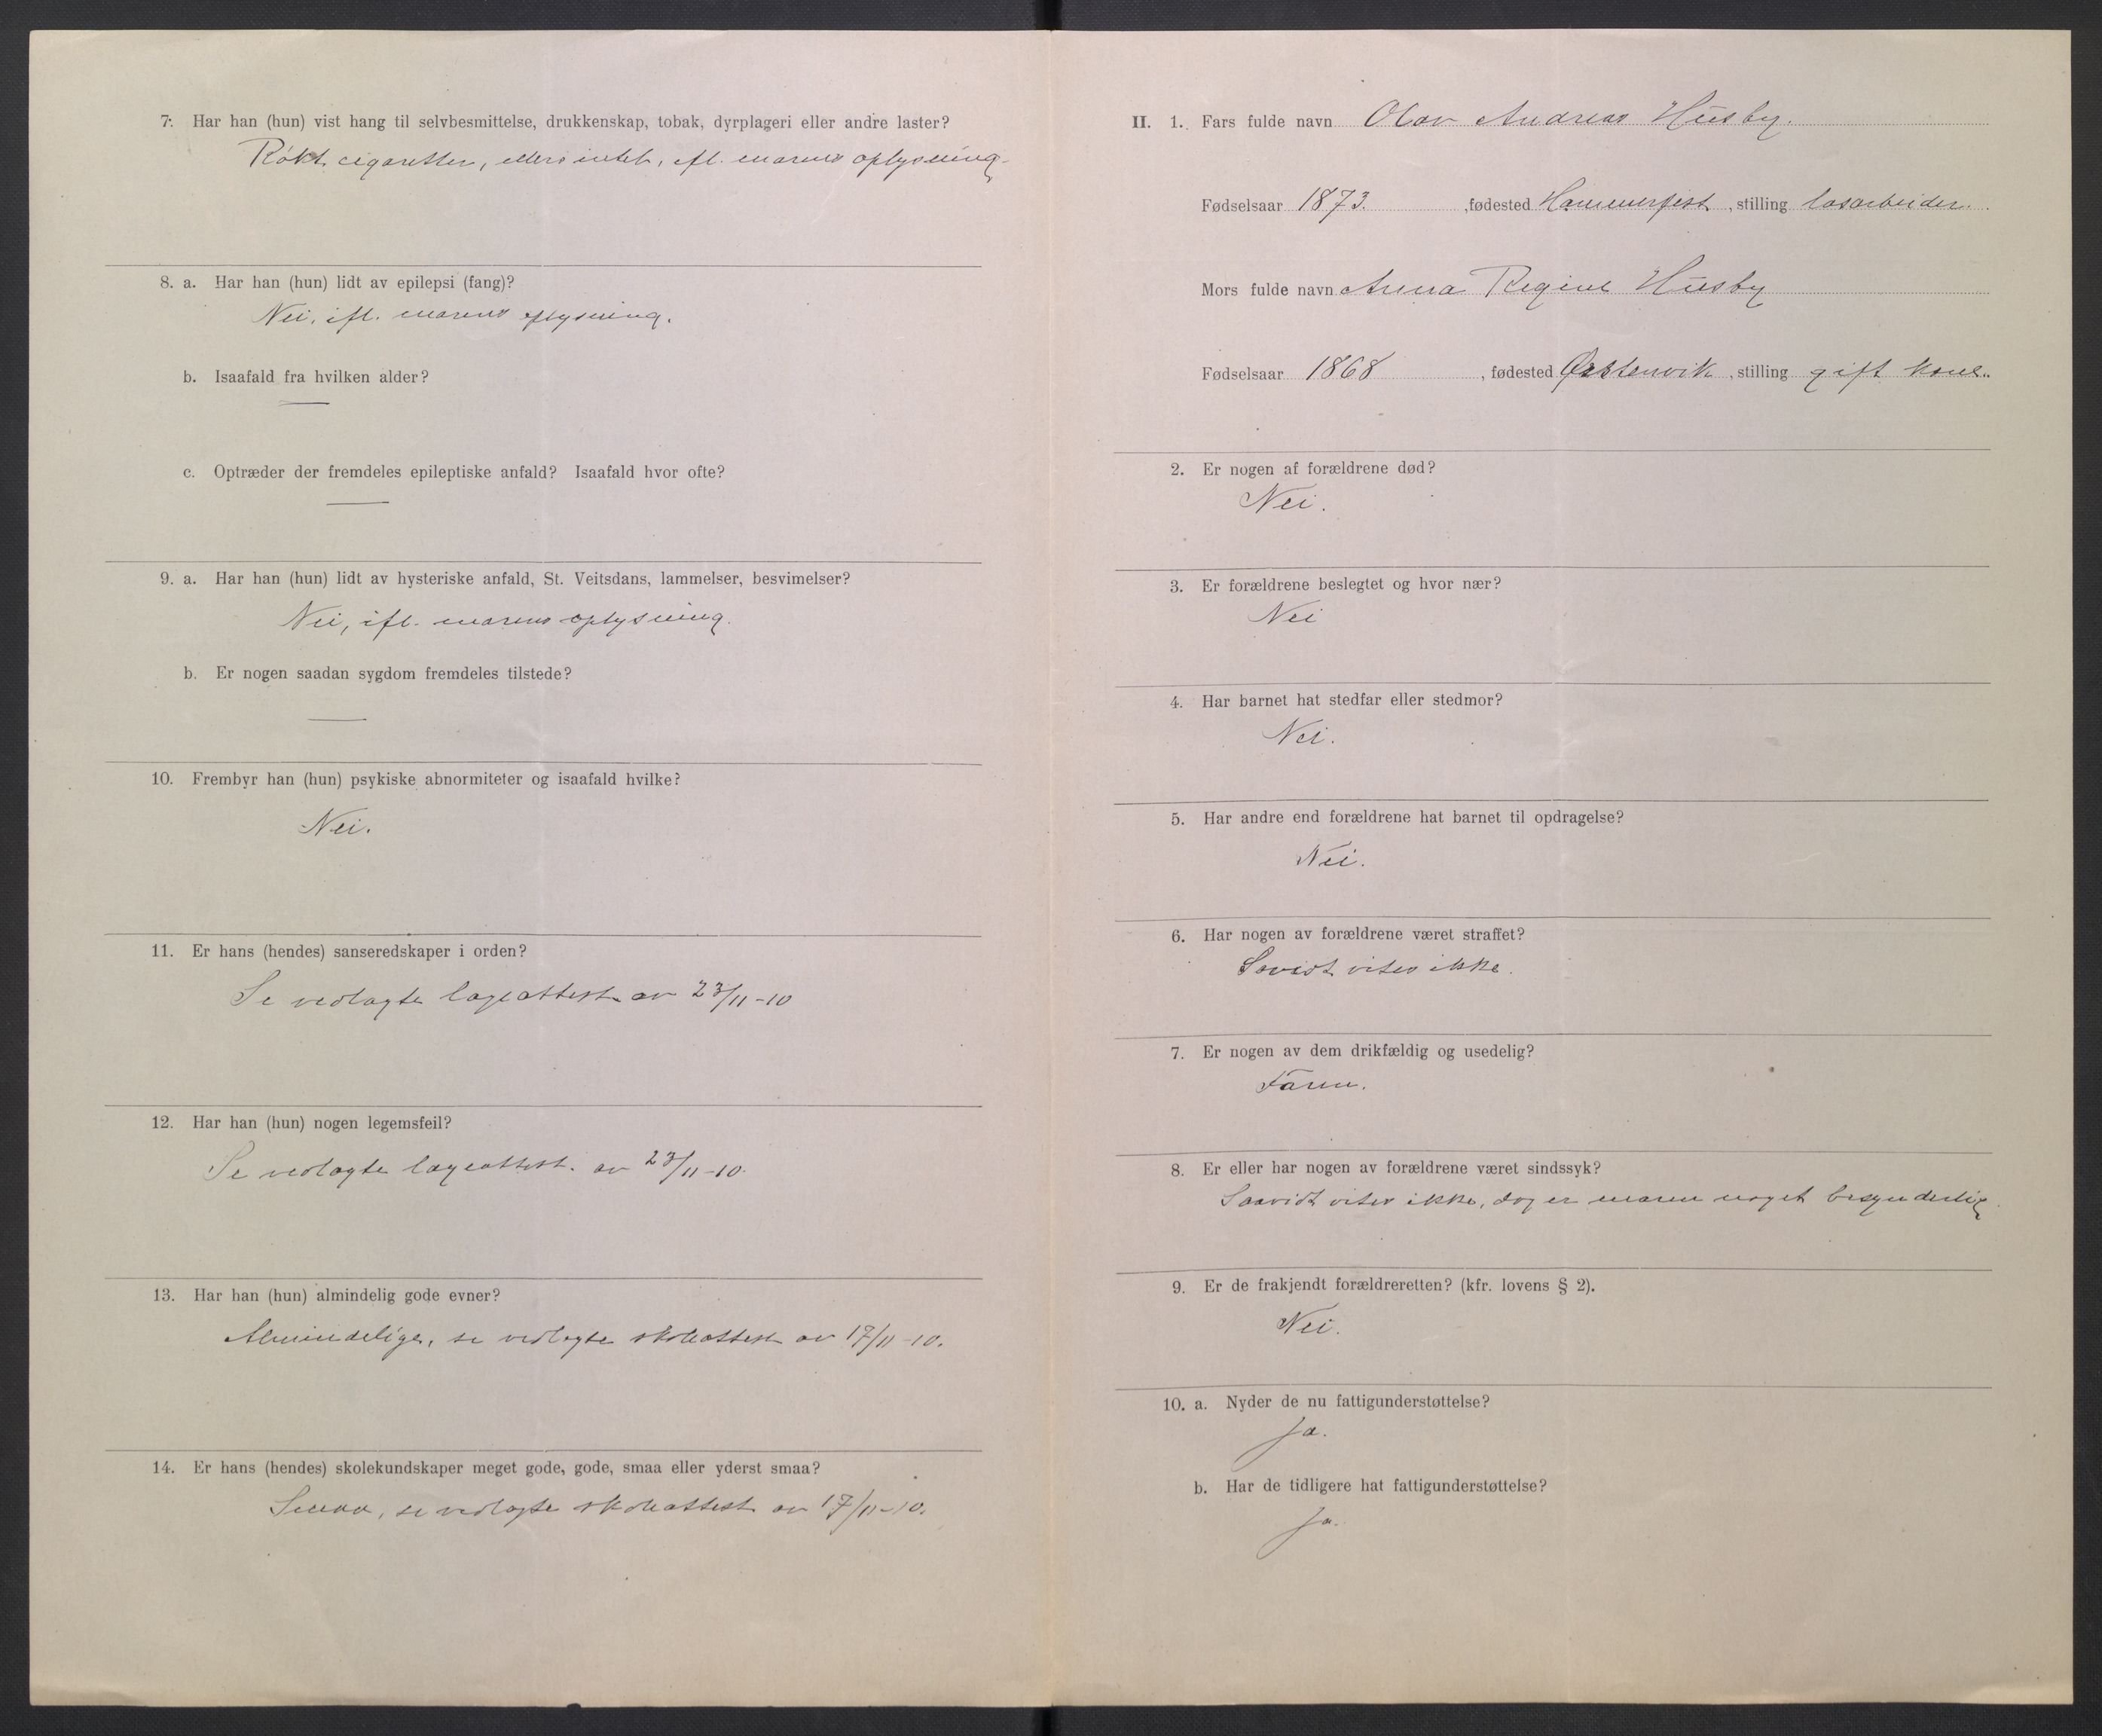 7. Har han (hun) vist hang til selvbesmittelse, drukkenskap, tobak, dyrplageri eller andre laster?
Røkt cigaretter, ellers intet, ifl. morens oplysning.
8. a. Har han (hun) lidt av epilepsi (fang)?
Nei, ifl. morens oplysning.
b. Isaafald fra hvilken alder?
—
c. Optræder der fremdeles epileptiske anfald? Isaafald hvor ofte?
—
9. a. Har han (hun) lidt av hysteriske anfald, St. Veitsdans, lammelser, besvimelser?
Nei, ifl. morens oplysning.
b. Er nogen saadan sygdom fremdeles tilstede?
—
10. Frembyr han (hun) psykiske abnormiteter og isaafald hvilke?
Nei.
11. Er hans (hendes) sanseredskaper i orden?
Se vedlagte lægeattest av 23/11-10
12. Har han (hun) nogen legemsfeil?
Se vedlagte lægeattest. av 23/11-10.
13. Har han (hun) almindelig gode evner?
Almindelige, se vedlagte skoleattest av 17/11-10.
14. Er hans (hendes) skolekundskaper meget gode, gode, smaa eller yderst smaa?
Smaa, se vedlagte skoleattest av 17/11-10.
II. 1. Fars fulde navn Olav Andreas Husby.
Fødselsaar 1873. , fødested Hammerfest , stilling løsarbeider.
Mors fulde navn Anna Regine Husby
Fødselsaar 1868 , fødested , stilling gift kone.
2. Er nogen af forældrene død?
Nei.
3. Er forældrene beslegtet og hvor nær?
Nei
4. Har barnet hat stedfar eller stedmor?
Nei.
5. Har andre end forældrene hat barnet til opdragelse?
Nei.
6. Har nogen av forældrene været straffet?
Savidt vites ikke.
7. Er nogen av dem drikfældig og usedelig?
Faren.
8. Er eller har nogen av forældrene været sindssyk?
Saavidt vites ikke, dog er moren noget besynderlig
9. Er de frakjendt forældreretten? (kfr. lovens § 2).
Nei.
10. a. Nyder de nu fattigunderstøttelse?
Ja.
b. Har de tidligere hat fattigunderstøttelse?
Ja.